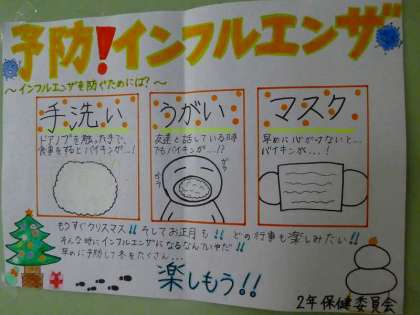 予防!インフルエンザ
～インフルエンザを防ぐためには?～
手洗い
ドアノブを触った手で、
食事をするとバイキンが…!
うがい
友達と話している時
でもバイキンが…!?
マスク
早めに心がけないと…
バイキンが…!
もうすぐクリスマス!!そしてお正月も!!どの行事も楽しみたい!!
そんな時にインフルエンザになるなんていやだ!!
早めに予防して冬をたくさん…
楽しもう!!
2年保健委員会